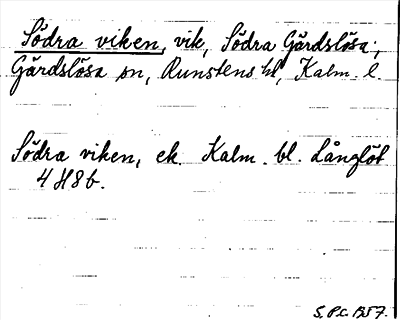 Södra viken, vik, Södra Gärdslösa;
Gärdslösa sn, Runstens hd, Kalm. l.
Södra viken, ek. Kalm. bl. Långlöt
4 H 8 b.
1957.